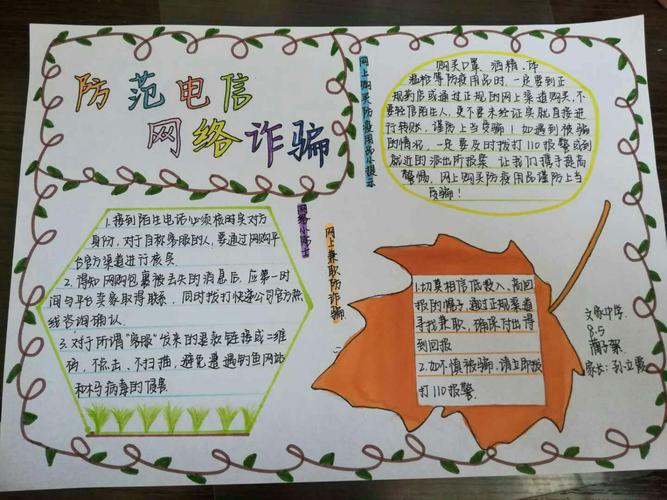 防范电信
网络诈骗
网上购买防疫用品小提示
购买口罩、酒精、体
温枪等防疫用品时，一定要到正
规药店或通过正规的网上渠道购买，不
要轻信陌生人，更不要未经证实就直接进
行转账，谨防上当受骗！如遇到被骗
的情况，一定要及时拨打110报警或到
就近的派出所报案，让我们携手提高
警惕，网上购买防疫用品谨防上当
受骗！
网络小贴士
1.接到陌生电话必须核实对方
身份，对于自称客服的人，要通过网购平
台官方渠道进行核实
2.得知网购包裹被丢失的消息后，应第一时
间与平台卖家取得联系，同时拨打快递公司官方热
线咨询确认.
3.对于所谓“客服”发来的退款链接或二维
码，不点击、不扫描，避免遭遇钓鱼网站
和木马病毒的侵害
网上兼职防诈骗
1.切莫相信低投入、高回
报的幌子，通过正规渠道
寻找兼职，确保付出得
到回报
2.如不慎被骗，请立即拨
打110报警.
中学
8.5
家长：孙立霞